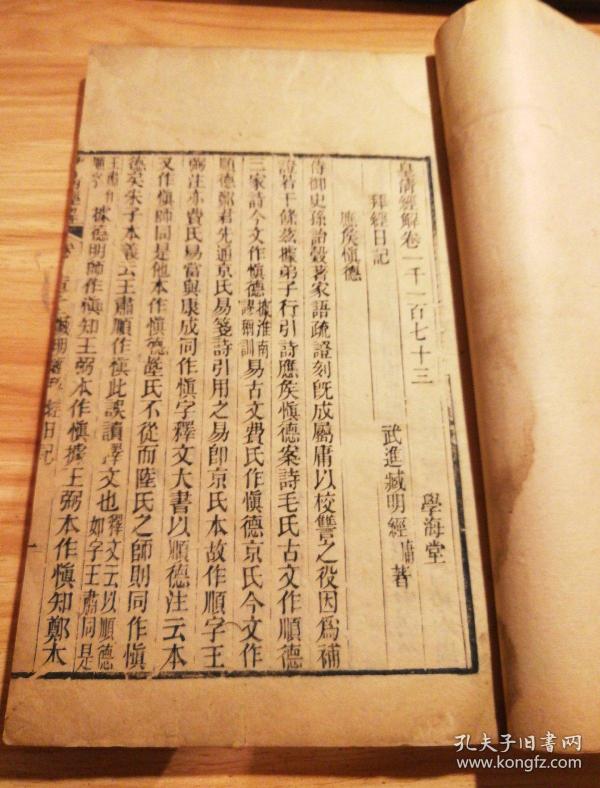 皇清經解卷一千一百七十三
學海堂
拜經日記
武進臧明經庸著
應矦慎德
侍御史孫詒穀著家語疏證刻旣成屬庸以校讐之役因爲補
證若干條茲據弟子行引詩應矦慎德案詩毛氏古文作順德
三家詩今文作慎德據淮南謬稱訓易古文費氏作慎德京氏今文作
順德鄭君先通京氏易箋詩引用之易卽京氏本故作順字王
弼注亦費氏易當與康成同作慎字釋文大書以順德注云本
又作慎師同是他本作慎德陸氏不從而陸氏之師則同作慎
德矣朱子本義云王肅順作慎此誤讀釋文也釋文云以順德如字王肅同是
王肅作順字據德明師作慎知王弼本作慎據王弼本作慎知鄭本
孔夫子旧书网
www.kongfz.com